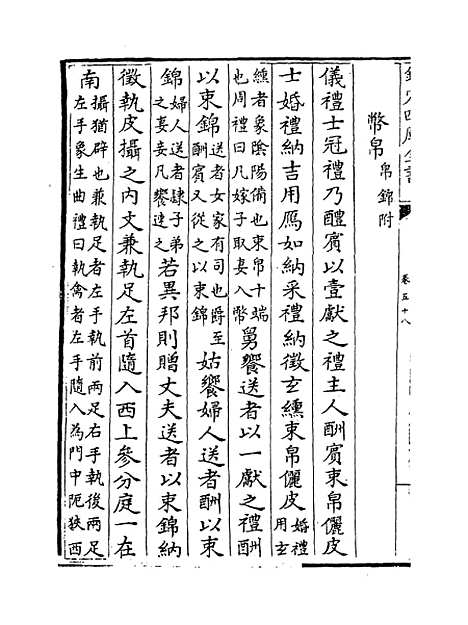 欽定四庫全書 卷五十八
幣帛 帛錦附
儀禮士冠禮乃醴賓以壹獻之禮主人酬賓束帛儷皮
士婚禮納吉用鴈如納采禮納徵玄纁束帛儷皮 婚禮用玄
纁者象陰陽備也束帛十端也周禮曰凡嫁子取妻入幣 舅饗送者以一獻之禮酬
以束錦 送者女家有司也爵至酬賓又從之以束錦 姑饗婦人送者酬以束
錦 婦人送者隸子弟之妻妾凡饗速之 若異邦則贈丈夫送者以束錦納
徵執皮攝之内文兼執足左首隨入西上參分庭一在
南 攝猶辟也兼執足者左手執前兩足右手執後兩足左手象生曲禮曰執禽者左手隨入為門中阨狹西